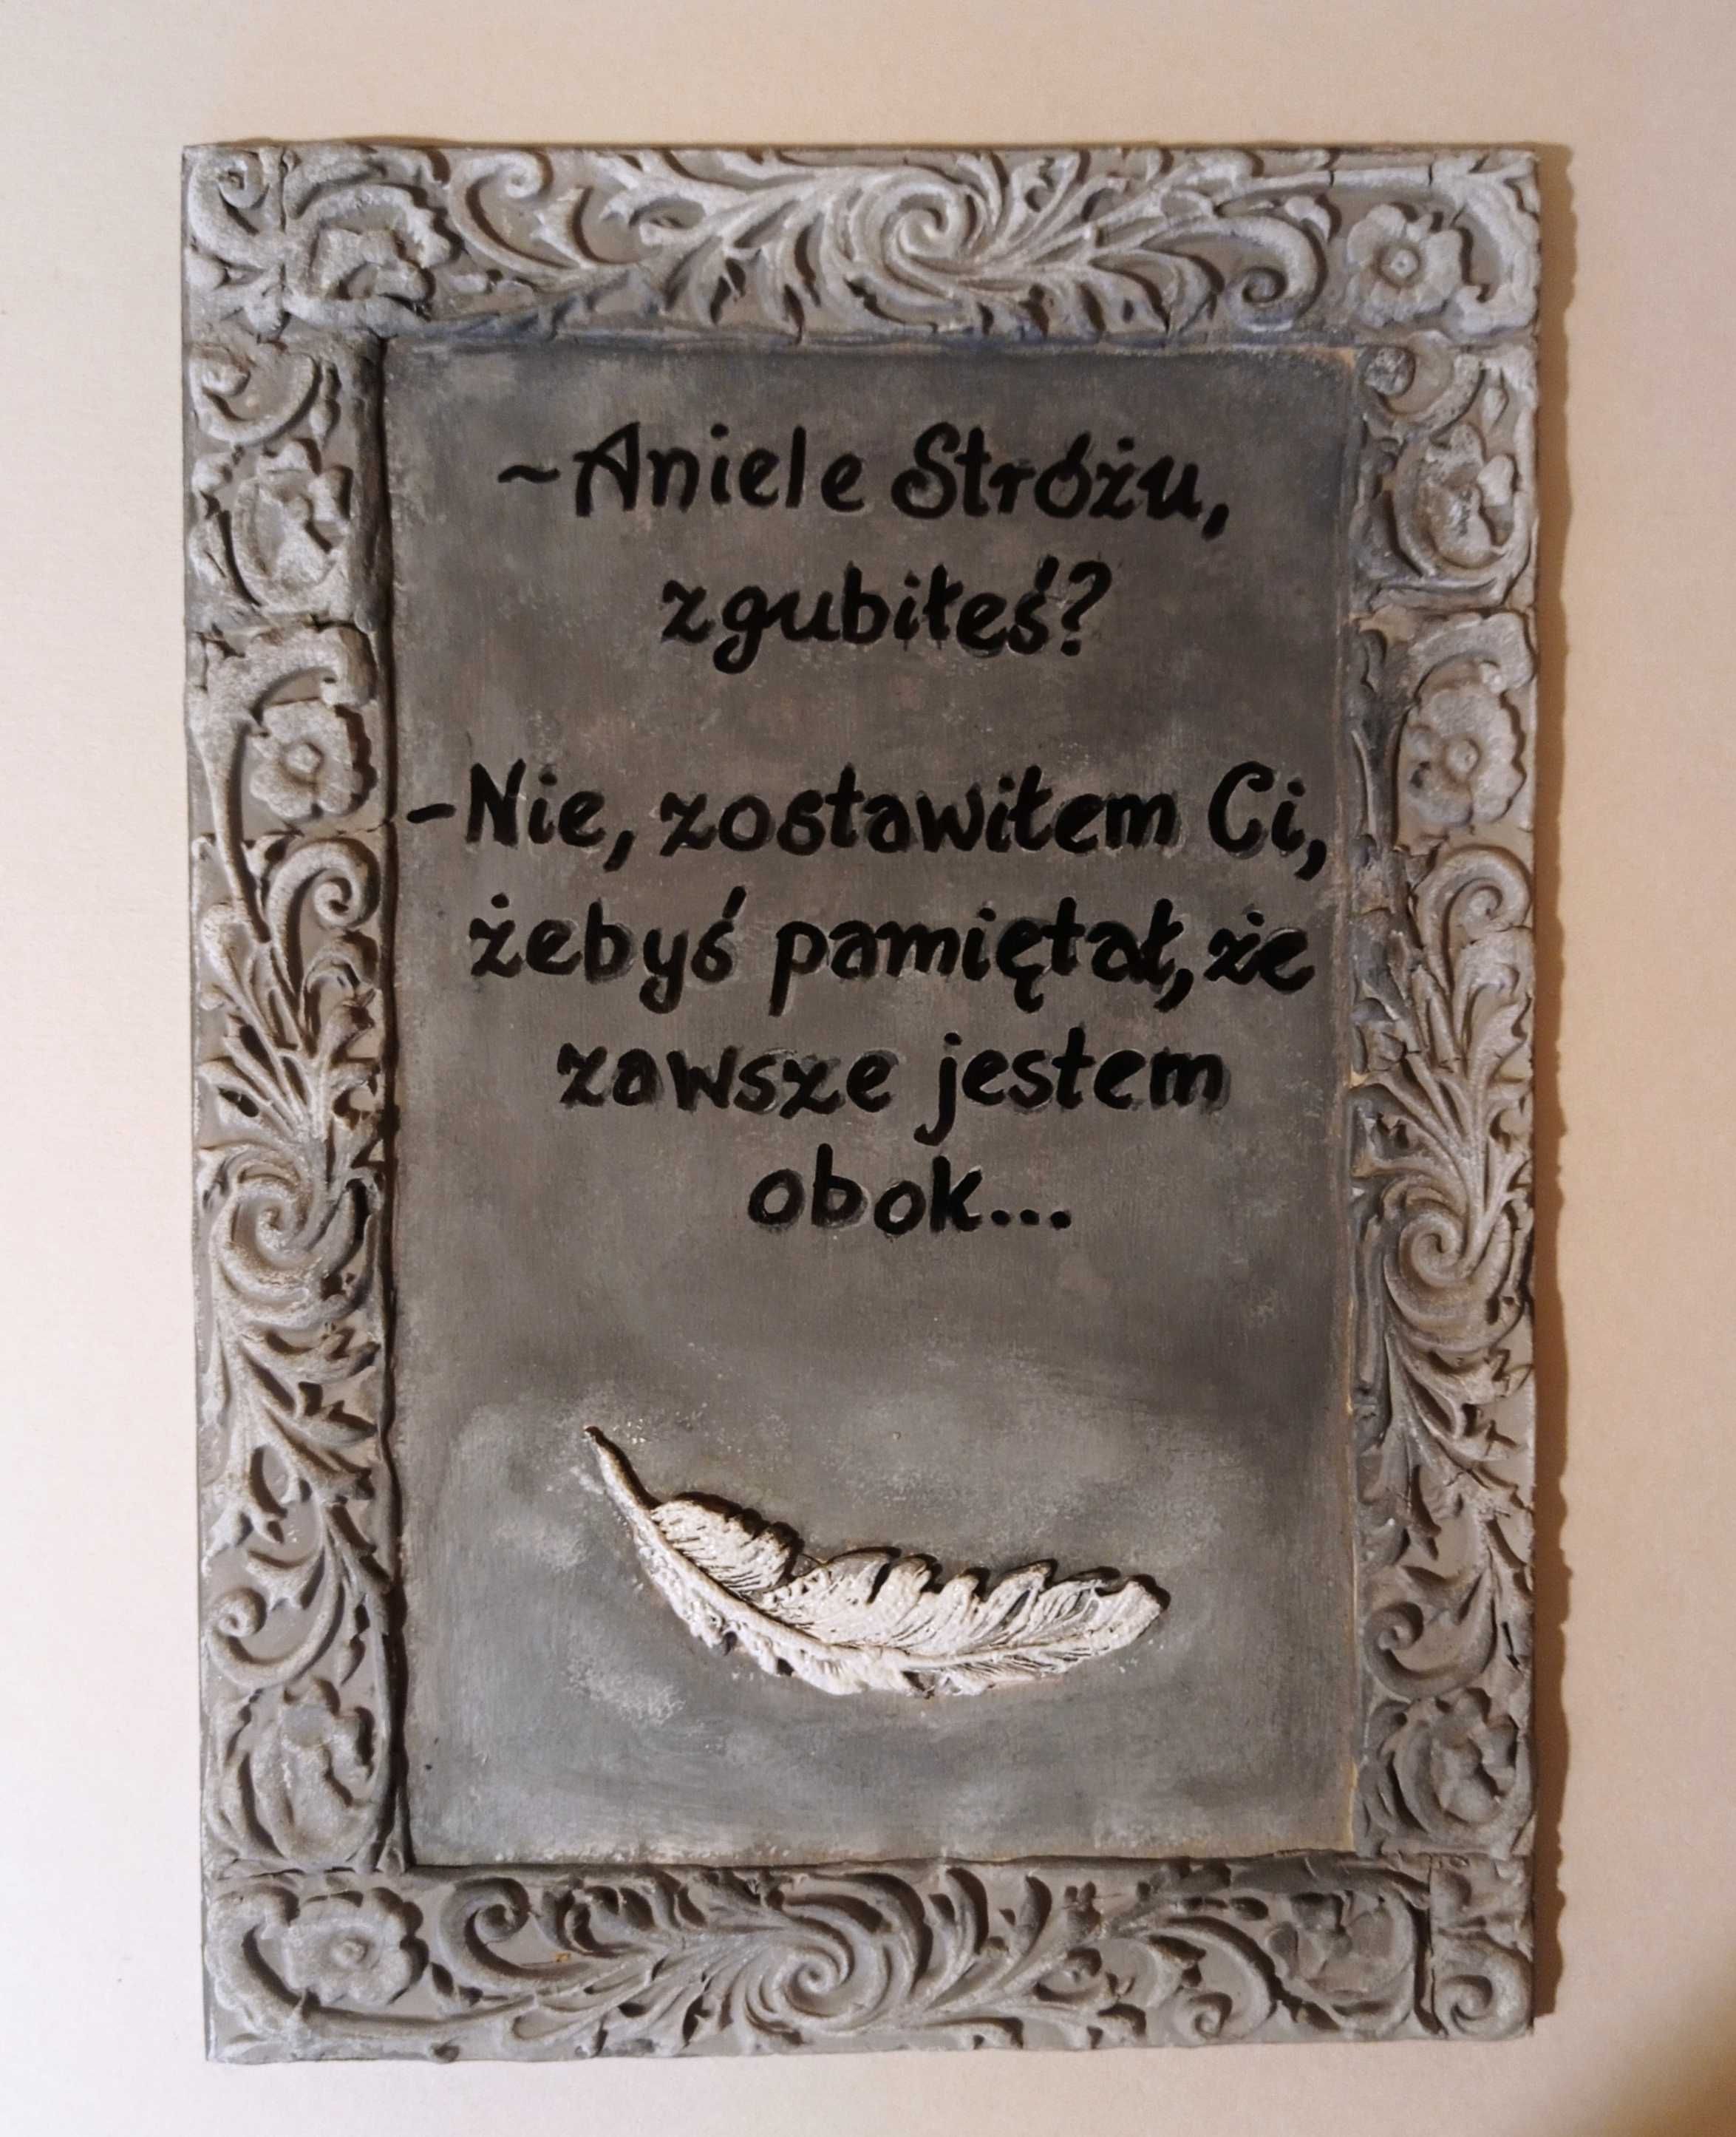 ~Aniele Stróżu,
zgubiłeś?
-Nie, zostawiłem Ci,
żebyś pamiętał, że
zawsze jestem
obok...